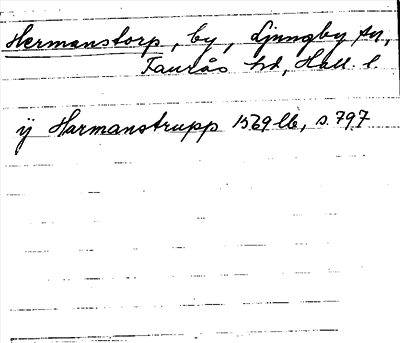 Hermanstorp, by, Ljungby sn,
Faurås hd, Hall. l
ÿ Harmanstrupp 1569 lb, s. 797